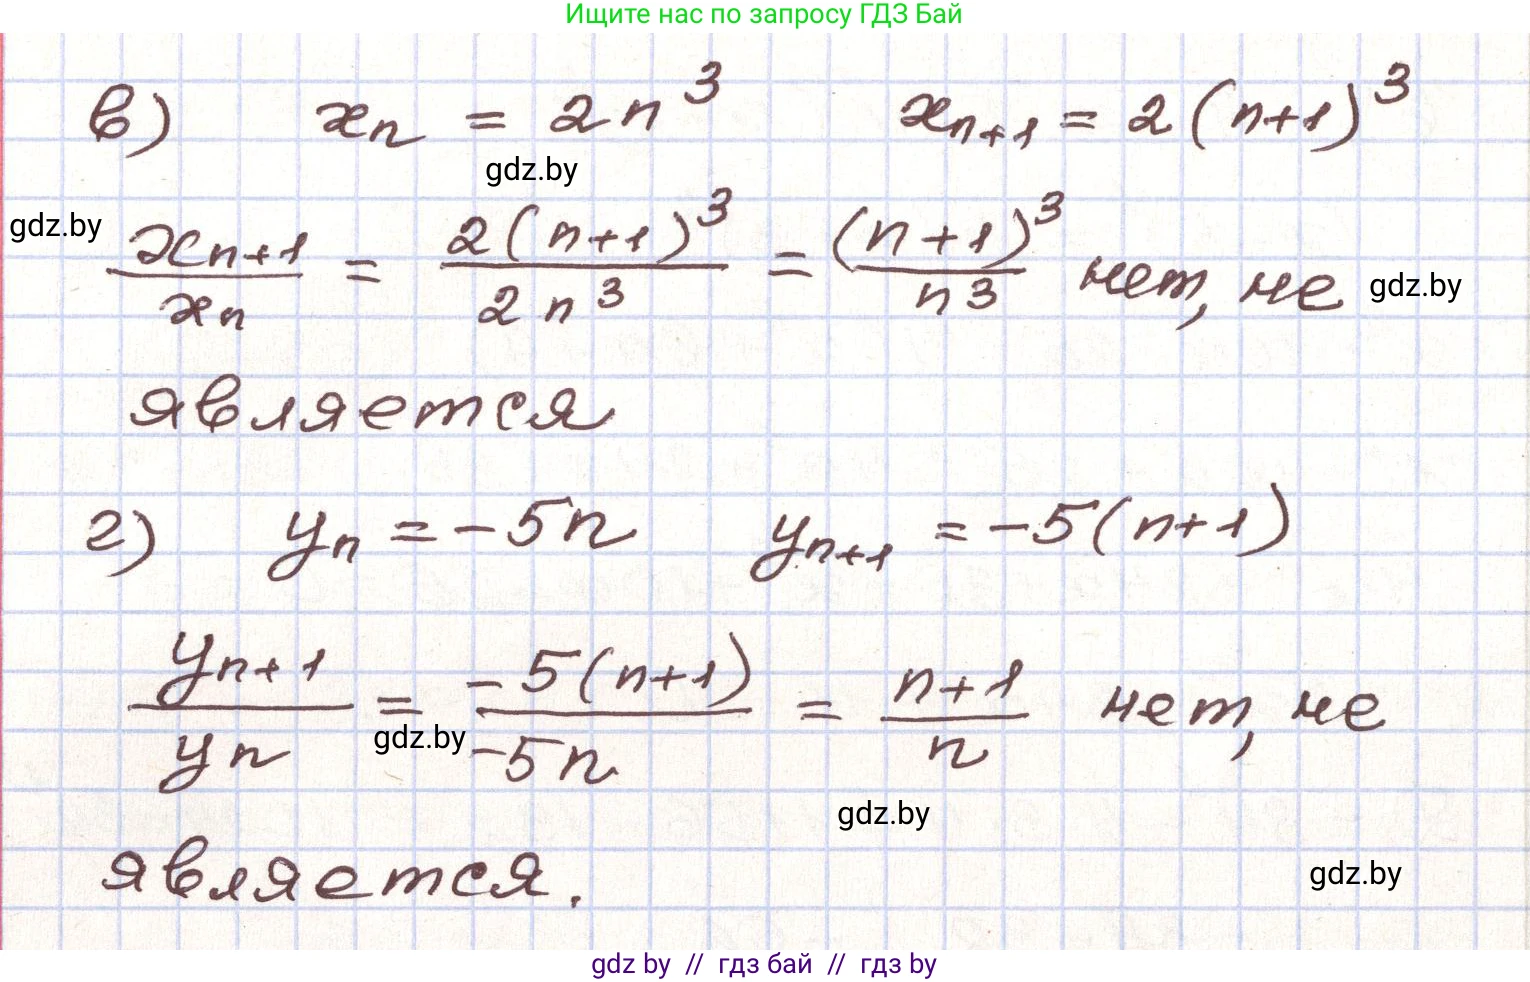 Ищите нас по запросу ГДЗ Бай
в) xₙ = 2n³ xₙ₊₁ = 2(n+1)³
gdz.by
gdz.by
xₙ₊₁/xₙ = 2(n+1)³/2n³ = (n+1)³/n³ нет, не
gdz.by
является
г) yₙ = -5n yₙ₊₁ = -5(n+1)
yₙ₊₁/yₙ = -5(n+1)/-5n = n+1/n нет, не
gdz.by
gdz.by
является.
gdz.by
gdz by // гдз бай // гдз by